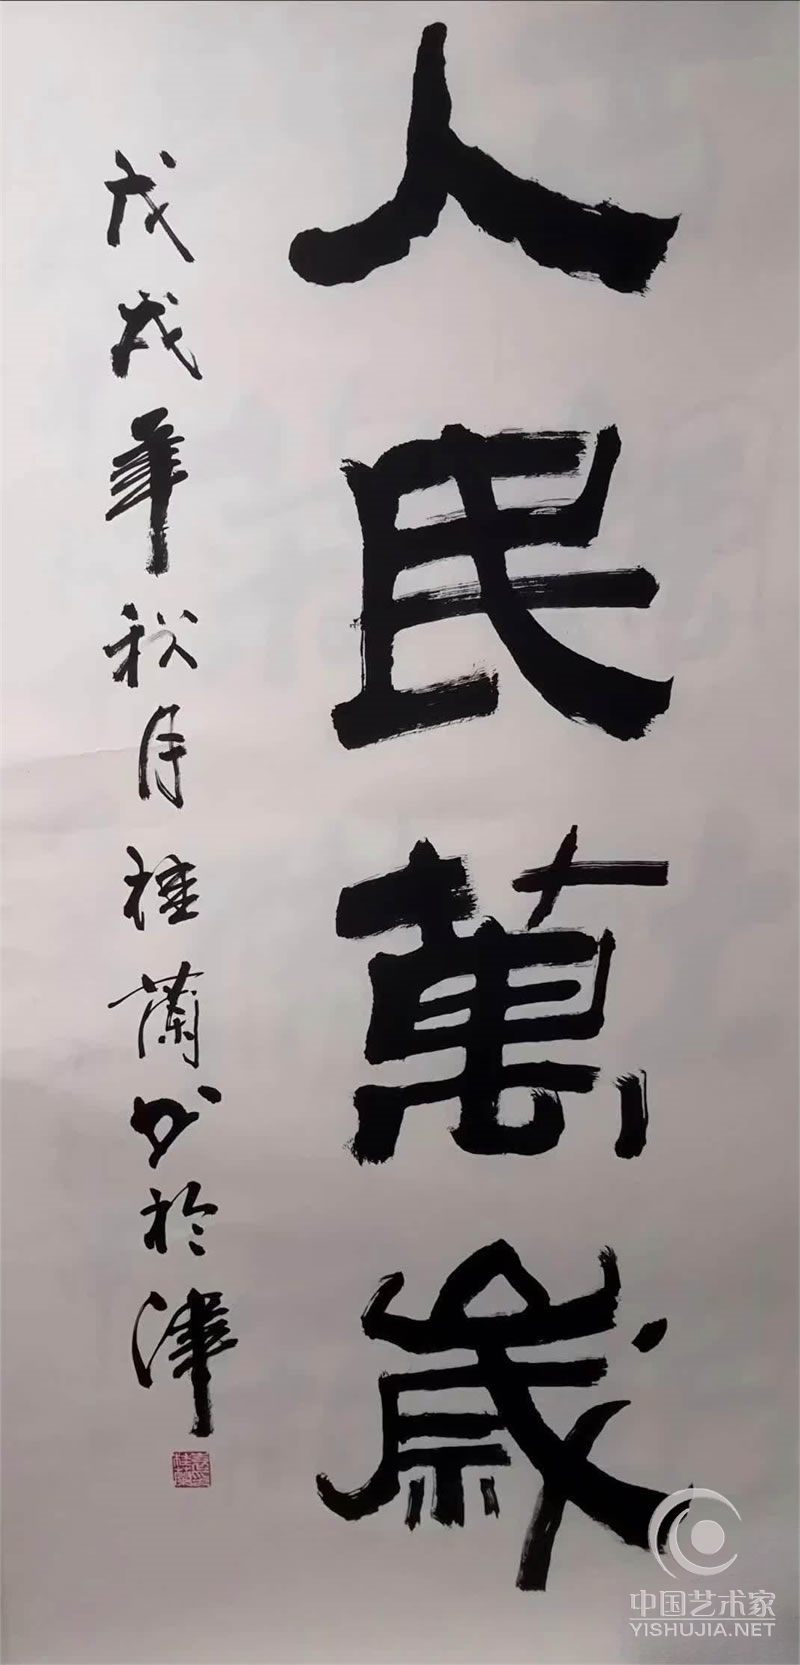 人民萬歲
戊戌年秋月桂蘭书於津
中国艺术家
YISHUJIA.NET